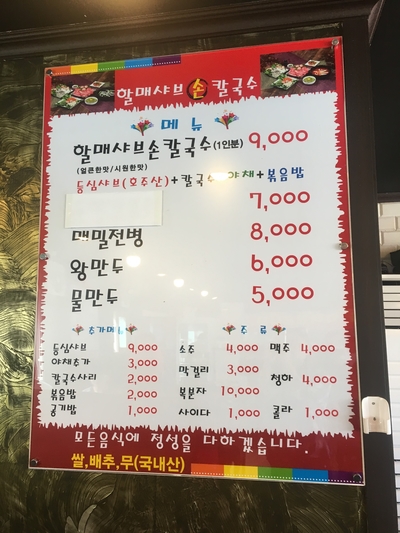 할매샤브 손 칼국수
메 뉴
할매샤브손칼국수(1인분) 9,000
(얼큰한맛/시원한맛)
등심샤브(호주산)+칼국수+야채+볶음밥
7,000
메밀전병 8,000
왕만두 6,000
물만두 5,000
추가메뉴
등심샤브 9,000
야채추가 3,000
칼국수사리 2,000
볶음밥 2,000
공기밥 1,000
주 류
소주 4,000 맥주 4,000
막걸리 3,000
복분자 10,000 청하 4,000
사이다 1,000 콜라 1,000
모든음식에 정성을 다하겠습니다.
쌀,배추,무(국내산)